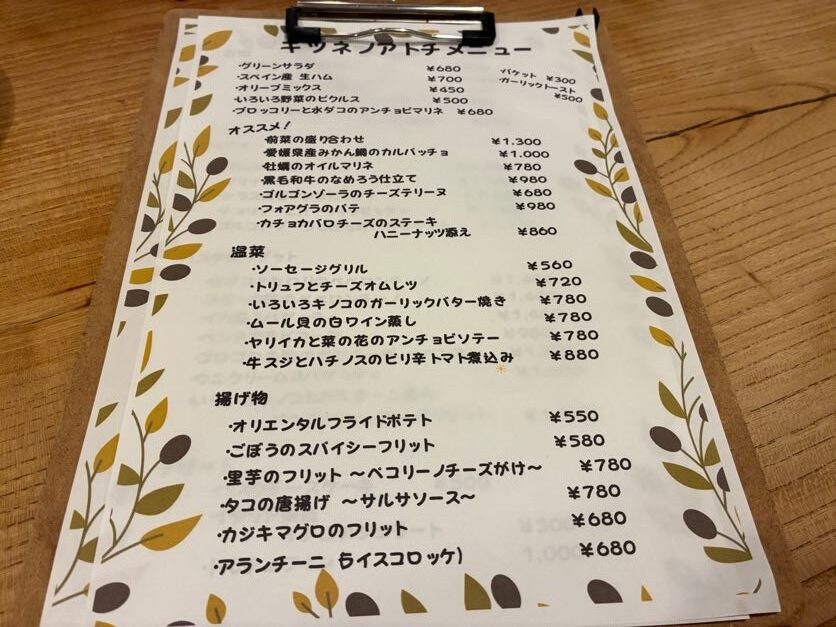 キツネノアトチメニュー
・グリーンサラダ ¥680
・スペイン産 生ハム ¥700
・オリーブミックス ¥450
・いろいろ野菜のピクルス ¥500
・ブロッコリーと水ダコのアンチョビマリネ ¥680
バケット ¥300
・ガーリックトースト
¥500
オススメ!
・前菜の盛り合わせ ¥1.300
・愛媛県産みかん鯛のカルパッチョ ¥1.000
・牡蠣のオイルマリネ ¥780
・黒毛和牛のなめろう仕立て ¥980
・ゴルゴンゾーラのチーズテリーヌ ¥680
・フォアグラのパテ ¥980
・カチョカバロチーズのステーキ
ハニーナッツ添え ¥860
温菜
・ソーセージグリル ¥560
・トリュフとチーズオムレツ ¥720
・いろいろキノコのガーリックバター焼き ¥780
・ムール貝の白ワイン蒸し ¥780
・ヤリイカと菜の花のアンチョビソテー ¥780
・牛スジとハチノスのピリ辛トマト煮込み ¥880
揚げ物
・オリエンタルフライドポテト ¥550
・ごぼうのスパイシーフリット ¥580
・里芋のフリット ～ペコリーノチーズがけ～ ¥780
・タコの唐揚げ ～サルサソース～ ¥780
・カジキマグロのフリット ¥680
・アランチーニ (ライスコロッケ) ¥680